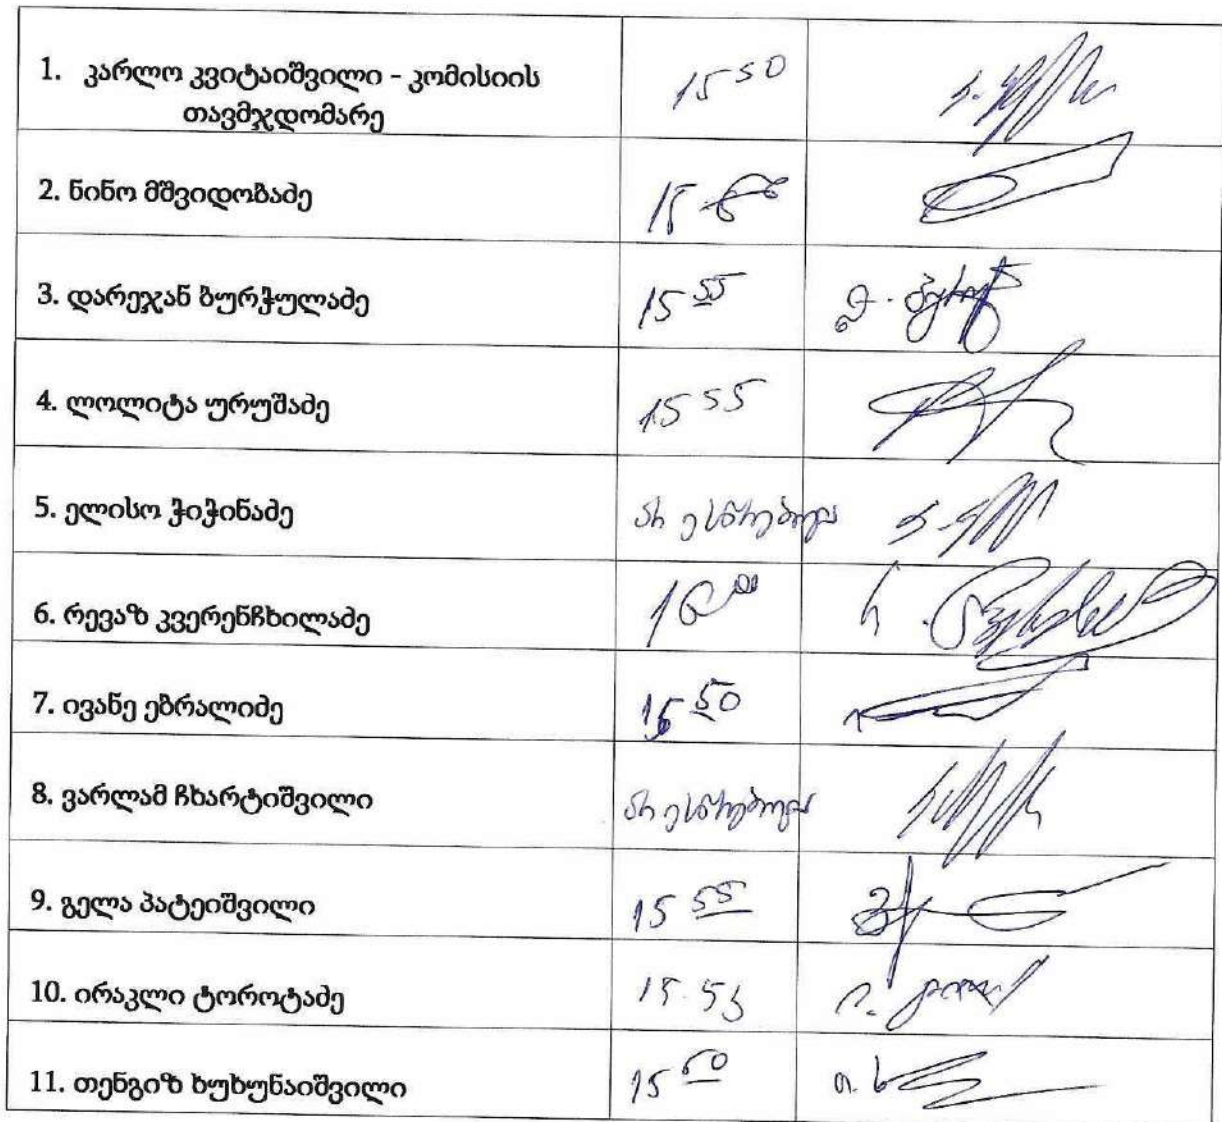 1. კარლო კვიტაიშვილი - კომისიის 15 50
თავმჯდომარე
2. ნინო მშვიდობაძე 15
3. დარეჯან ბურჭულაძე 15 55
4. ლოლიტა ურუშაძე 15 55
5. ელისო ჭიჭინაძე არ ესწრებოდა
6. რევაზ კვერენჩხილაძე 16 00
7. ივანე ებრალიძე 15 50
8. ვარლამ ჩხარტიშვილი არ ესწრებოდა
9. გელა პატეიშვილი 15 55
10. ირაკლი ტოროტაძე 15.53
11. თენგიზ ხუხუნაიშვილი 15 50